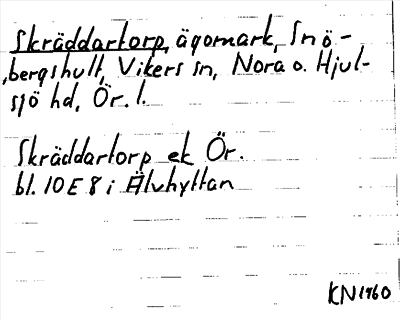 Skräddartorp, ägomark, Snö-
bergshult, Vikers sn, Nora o. Hjul-
sjö hd, Ör. l.
Skräddartorp ek Ör.
bl. 10 E 8 i Älvhyttan
KN 1960